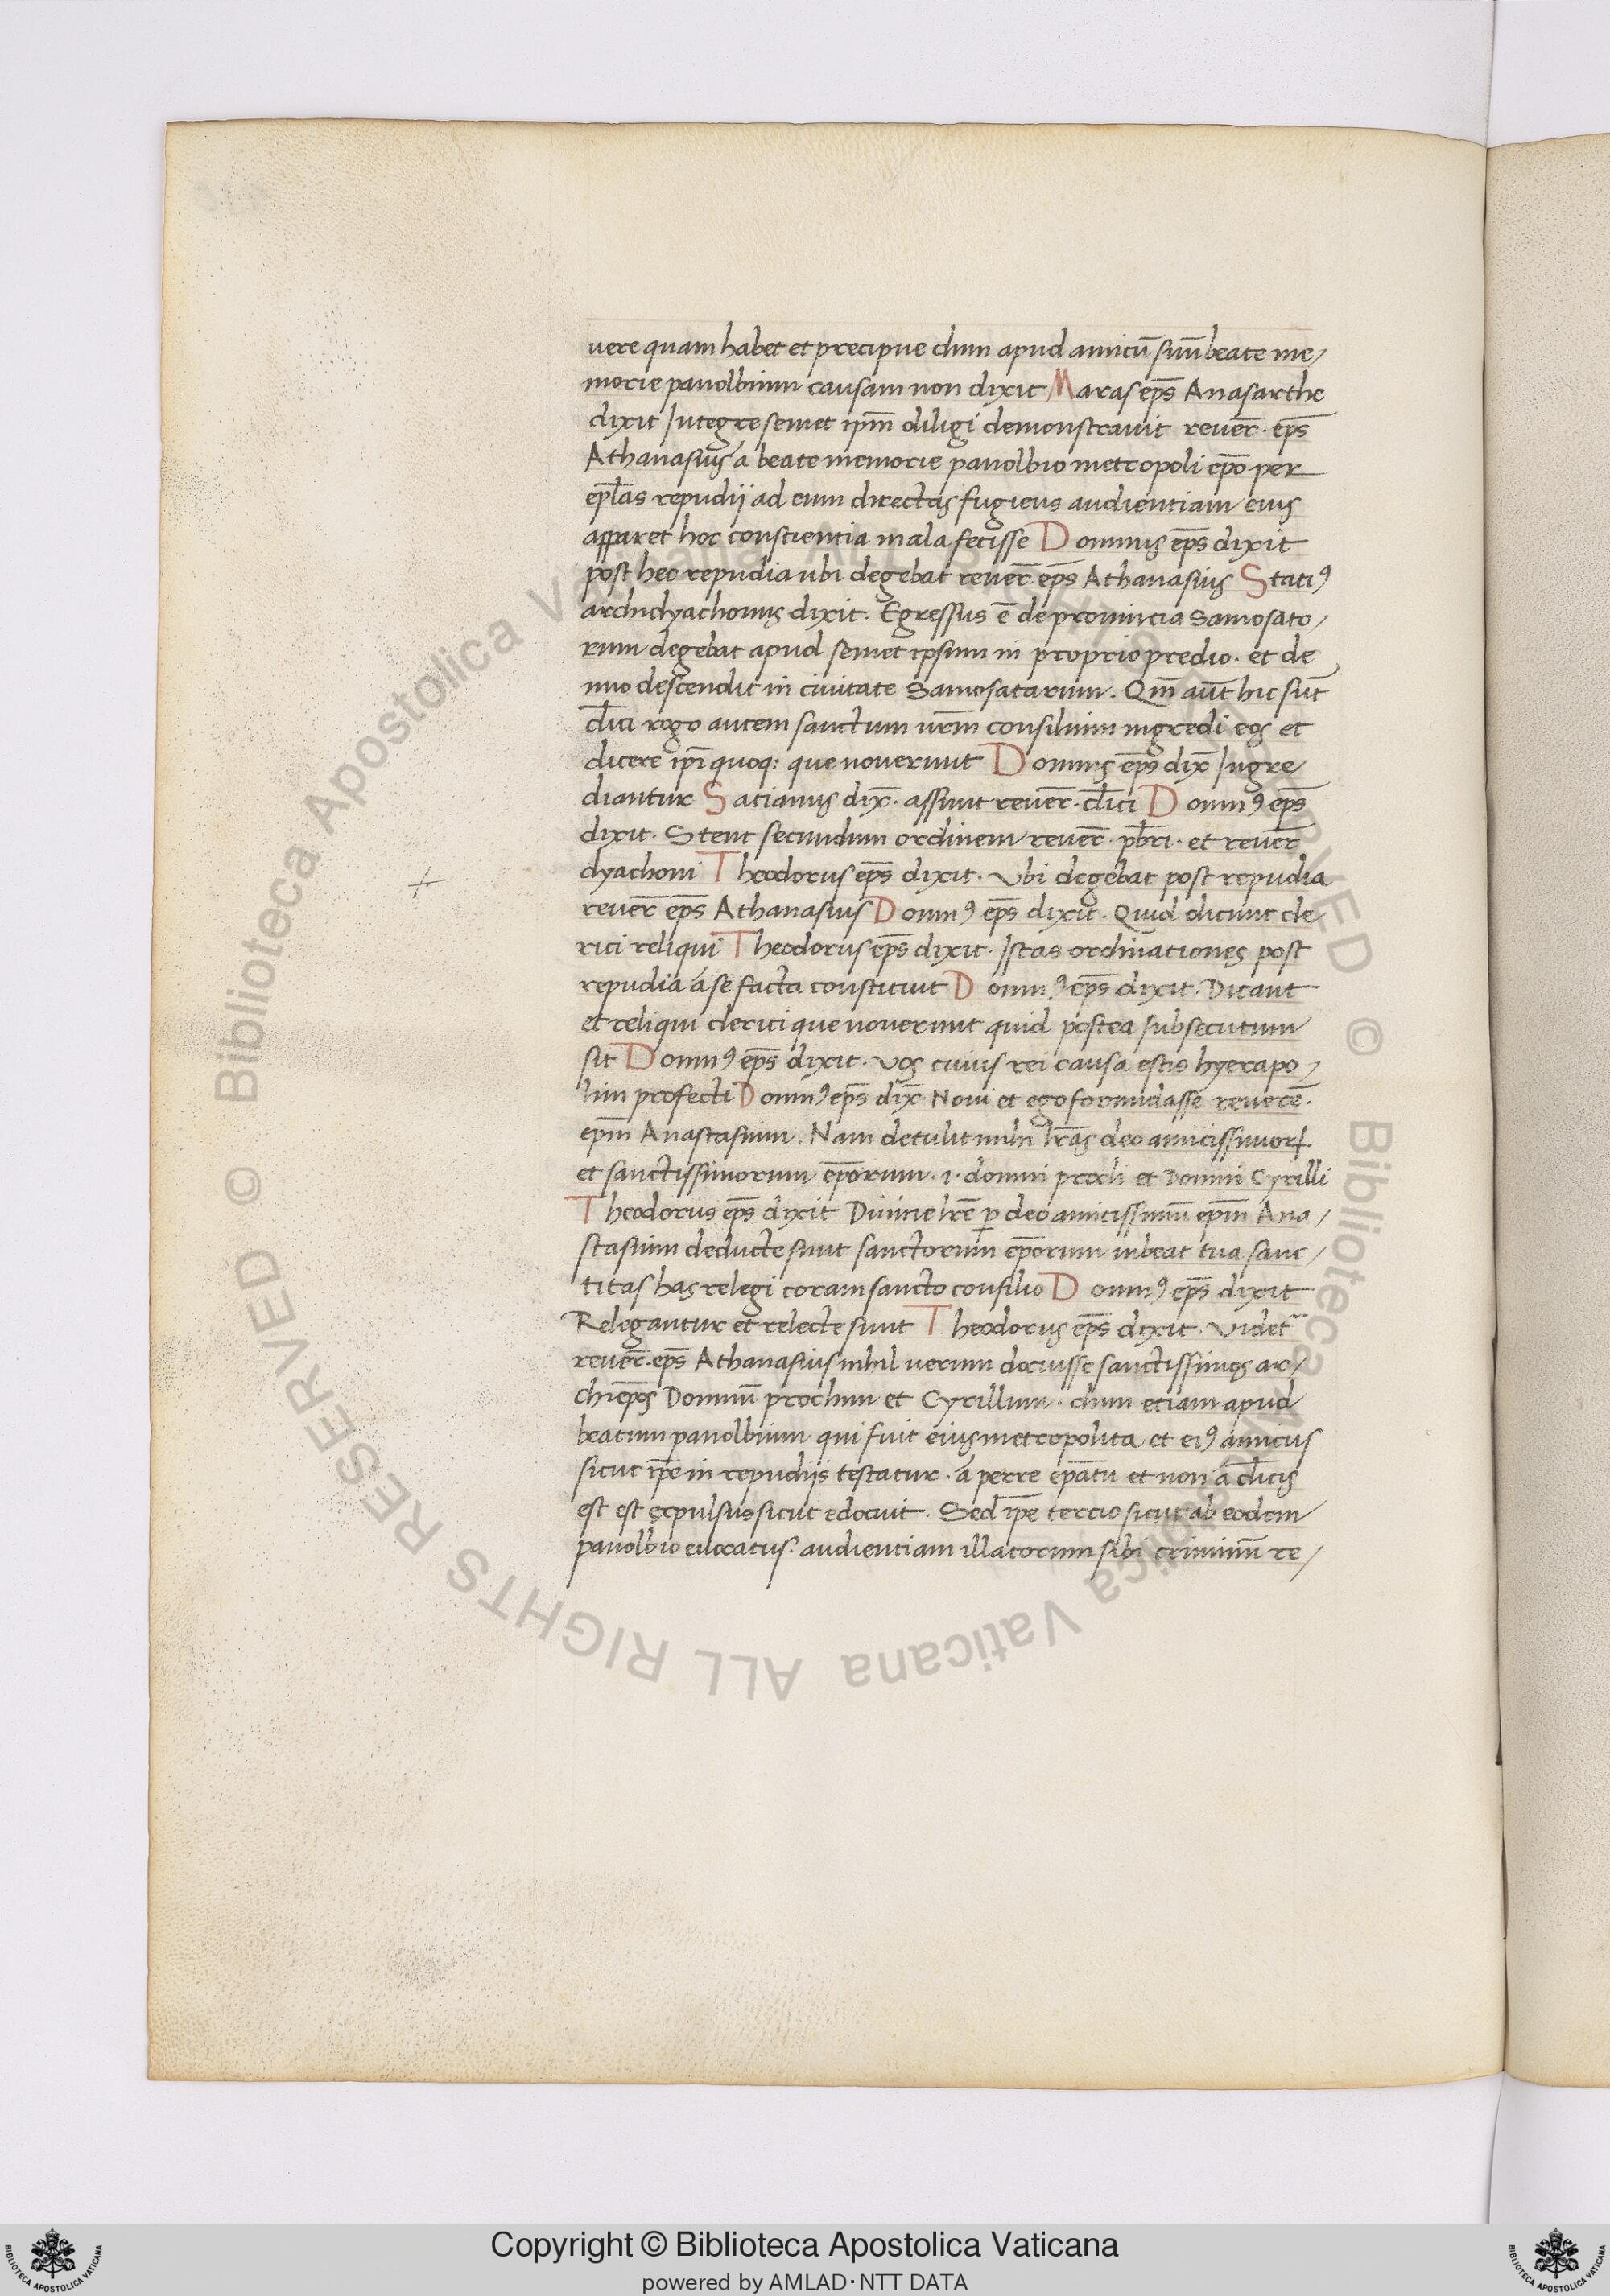 uere quam habet et precipue dum apud amicū suū beate me/
morie panolbium causam non dixit Maras ep̄s Anasarthe
dixit Integre semet ip̄m diligi demonstrauit reuer̄. ep̄s
Athanasius a beate memorie panolbio metropoli ep̄o per
ep̄las repudij ad eum directas fugiens audientiam eius
apparet hoc conscientia mala fecisse Domnus ep̄s dixit
post hec repudia ubi degebat reuer̄ ep̄s Athanasius Statiꝰ
archidyachonus dixit. Egressus ē de prouincia Samosato/
rum degebat apud semet ipsum in proprio predio. et de
nuo descendit in ciuitate Samosatarum. Qm̄ aūt hic sūt
cl̄ici rogo autem sanctum vr̄m consilium ingredi eos et
dicere ip̄i quoq: que nouerunt Domnus ep̄s dix̄ Ingre/
diantur Satianus dix̄. assunt reuer̄. cl̄ici Domnꝰ ep̄s
dixit. Stent secundum ordinem reuer̄. pb̄ri. et reuer̄
dyachoni Theodorus ep̄s dixit. Vbi degebat post repudia
reuer̄ ep̄s Athanasius Domnꝰ ep̄s dixit. Quid dicunt cle
rici reliqui Theodorus ep̄s dixit. Istas ordinationes post
repudia a se facta constituit Domnꝰ ep̄s dixit. Dicant
et reliqui clerici que nouerunt quid postea subsecutum
sit Domnꝰ ep̄s dixit. Vos cuius rei causa estis hyerapo/
lim profecti Domnꝰ ep̄s dix̄ Noui et ego formidasse reuerē.
ep̄m Anastasium. Nam detulit mihi lr̄as deo amicissimoꝝ
et sanctissimorum ep̄orum .i. domni procli et Domni Cyrilli
Theodorus ep̄s dixit Diuine lr̄e ꝑ deo amicissimū ep̄m Ana/
stasium deducte sunt sanctorum ep̄orum iubeat tua sanc/
titas has relegi coram sancto consilio Domnꝰ ep̄s dixit
Relegantur et relecte sunt Theodorus ep̄s dixit. Videt͛
reuer̄. ep̄s Athanasius nihil uerum docuisse sanctissimos ar/
chiep̄os Domnū proclum et Cyrillum. dum etiam apud
beatum panolbium qui fuit eius metropolita et eiꝰ amicus
sicut ip̄e in repudijs testatur. a perre ep̄atu et non a cl̄icis
est est expulsus sicut edocuit. Sed ip̄e tercio sicut ab eodem
panolbio euocatus. audientiam illatorum sibi criminū re/
Copyright © Biblioteca Apostolica Vaticana
powered by AMLAD·NTT DATA